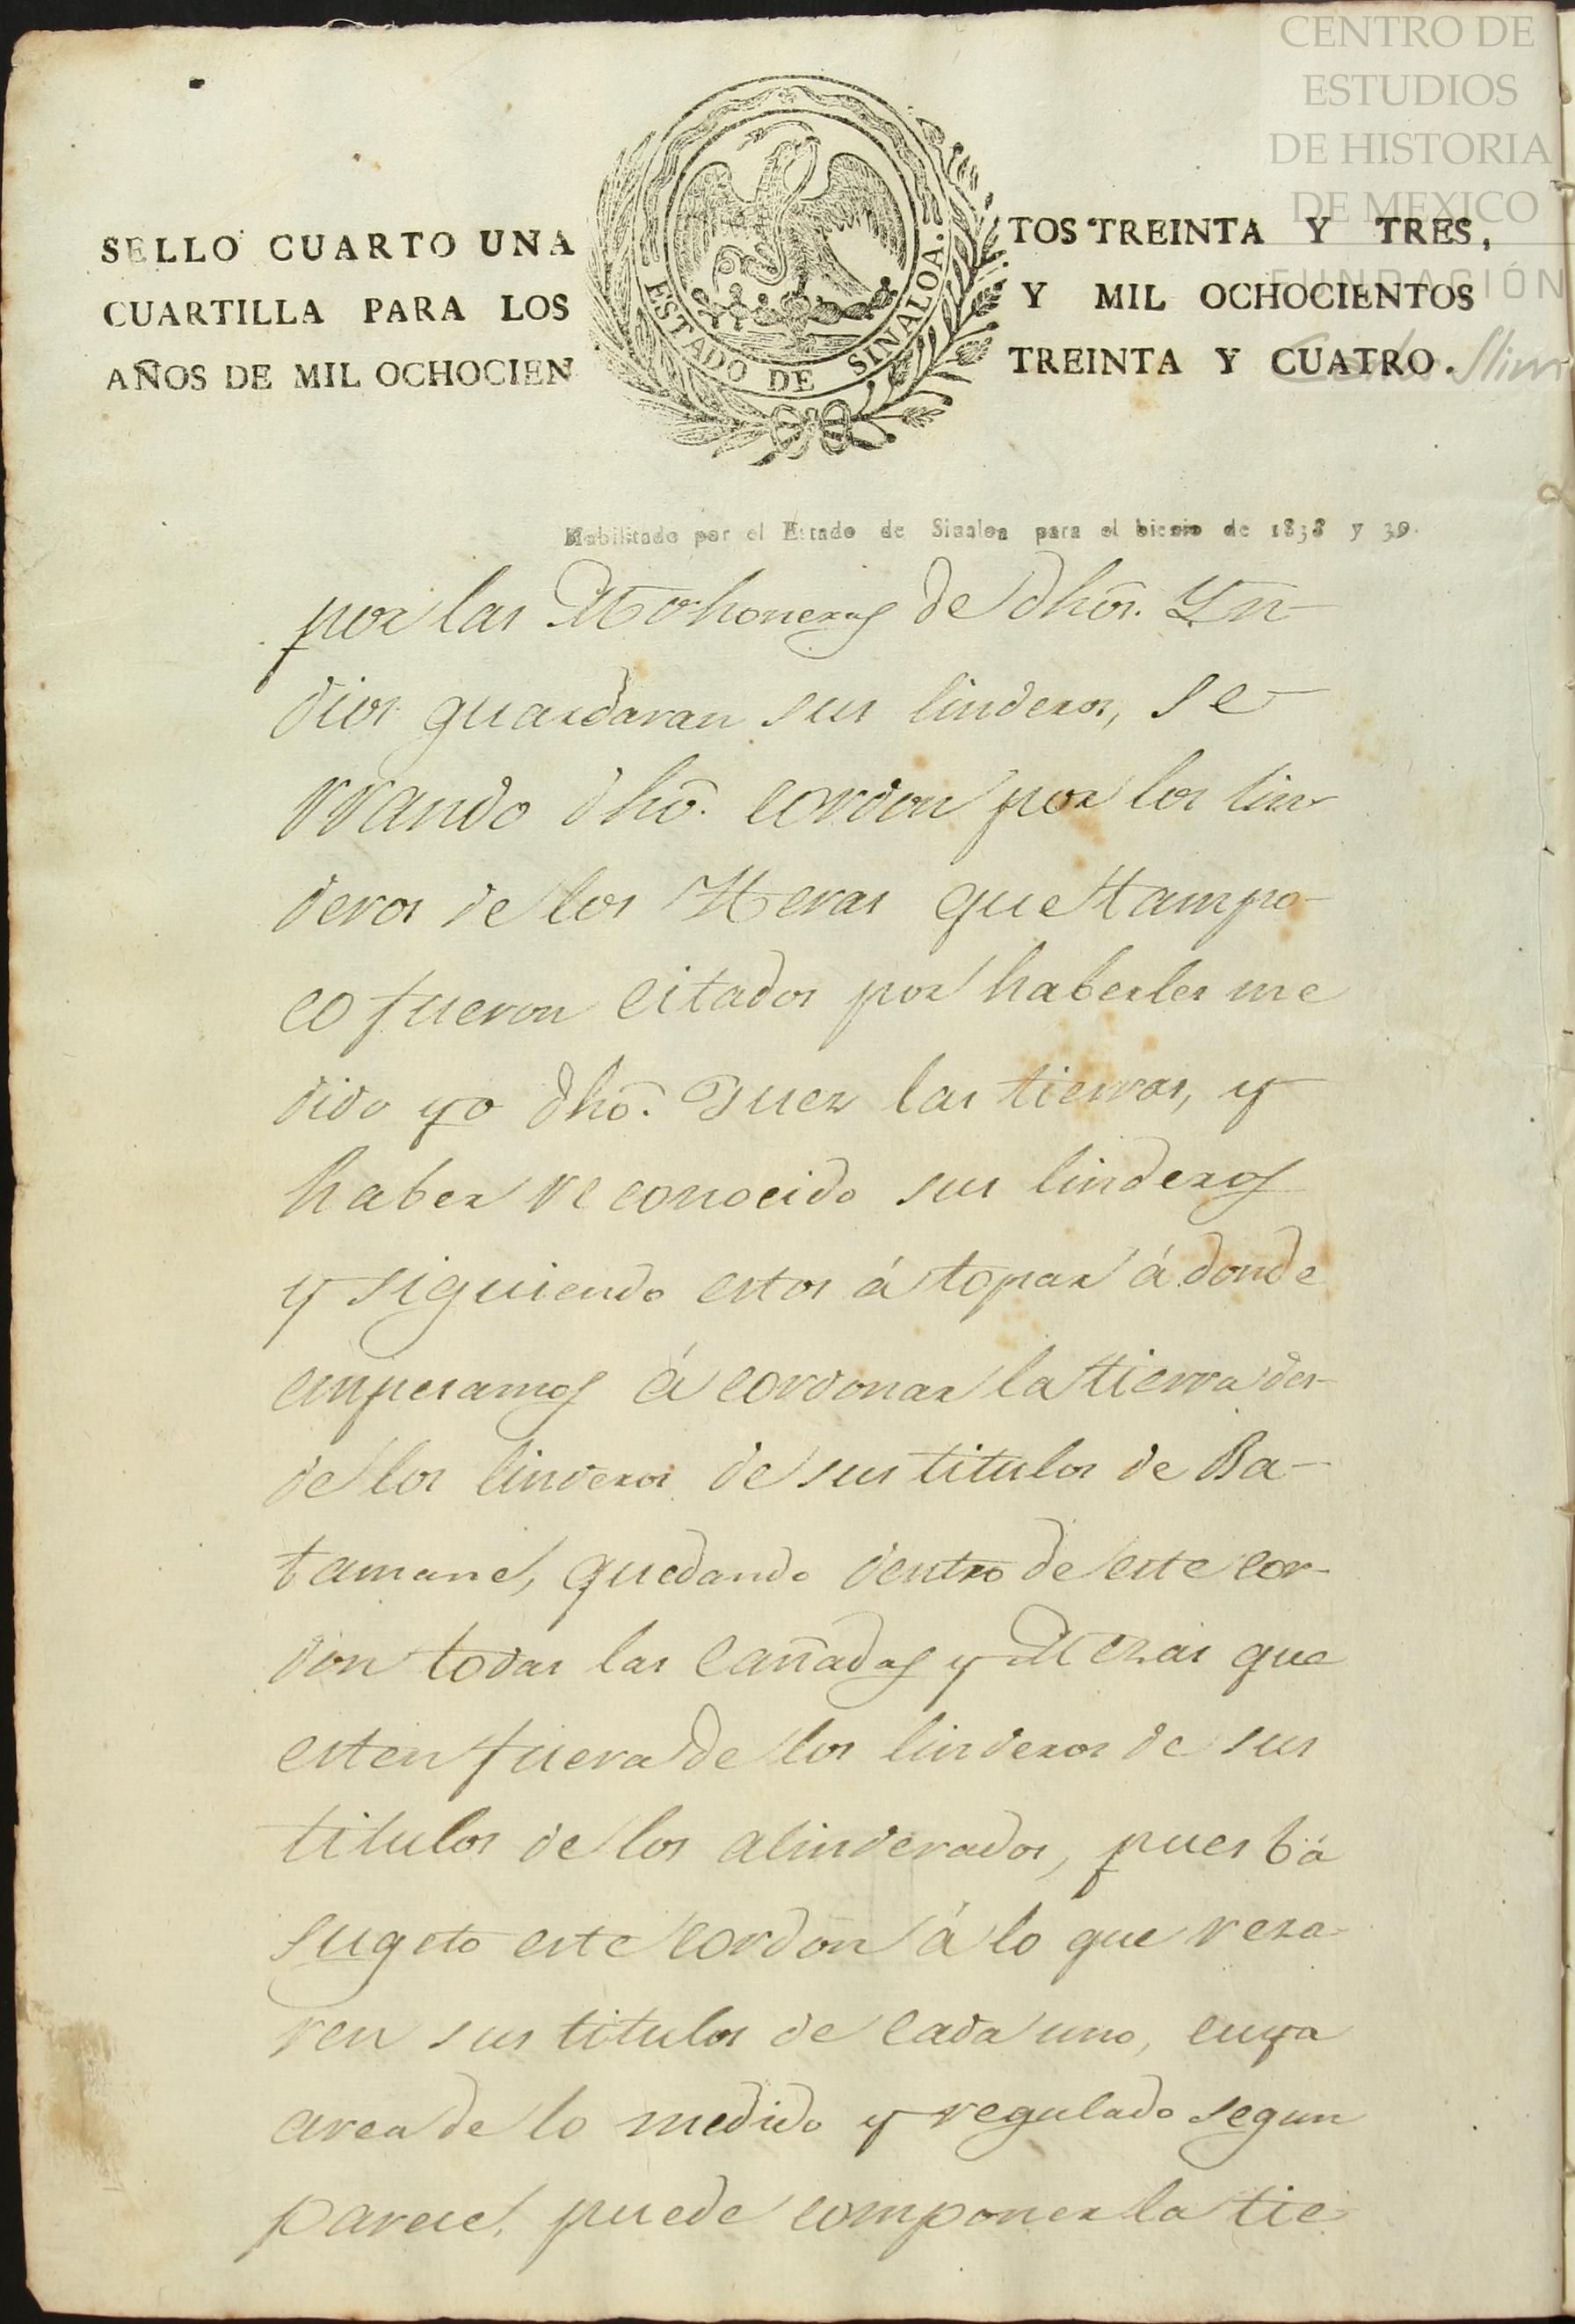 CENTRO DE
ESTUDIOS
DE HISTORIA
DE MEXICO
FUNDACIÓN
Carlos Slim
SELLO CUARTO UNA
CUARTILLA PARA LOS
AÑOS DE MIL OCHOCIEN
ESTADO DE SINALOA.
TOS TREINTA Y TRES,
Y MIL OCHOCIENTOS
TREINTA Y CUATRO.
Habilitado por el Estado de Sinaloa para el bienio de 1838 y 39.
por las Mohoneras de dhos. Yn-
dios guardaran sus linderos, se-
rrando dho. cordon por los lin-
deros de los Heras que tampo-
co fueron citados por haberles me
dido yo dho. Juez las tierras, y
haber reconocido sus linderos
y siguiendo estos á topar á donde
empesamos á cordonar la tierra des-
de los linderos de sus titulos de Ba-
tamane, quedando dentro de este cor-
don todas las cañadas y Mezas que
esten fuera de los linderos de sus
titulos de los alinderados, pues bá
sugeto este cordon á lo que reza-
ren sus titulos de cada uno, cuya
area de lo medido y regulado segun
parece, puede componer la tie-